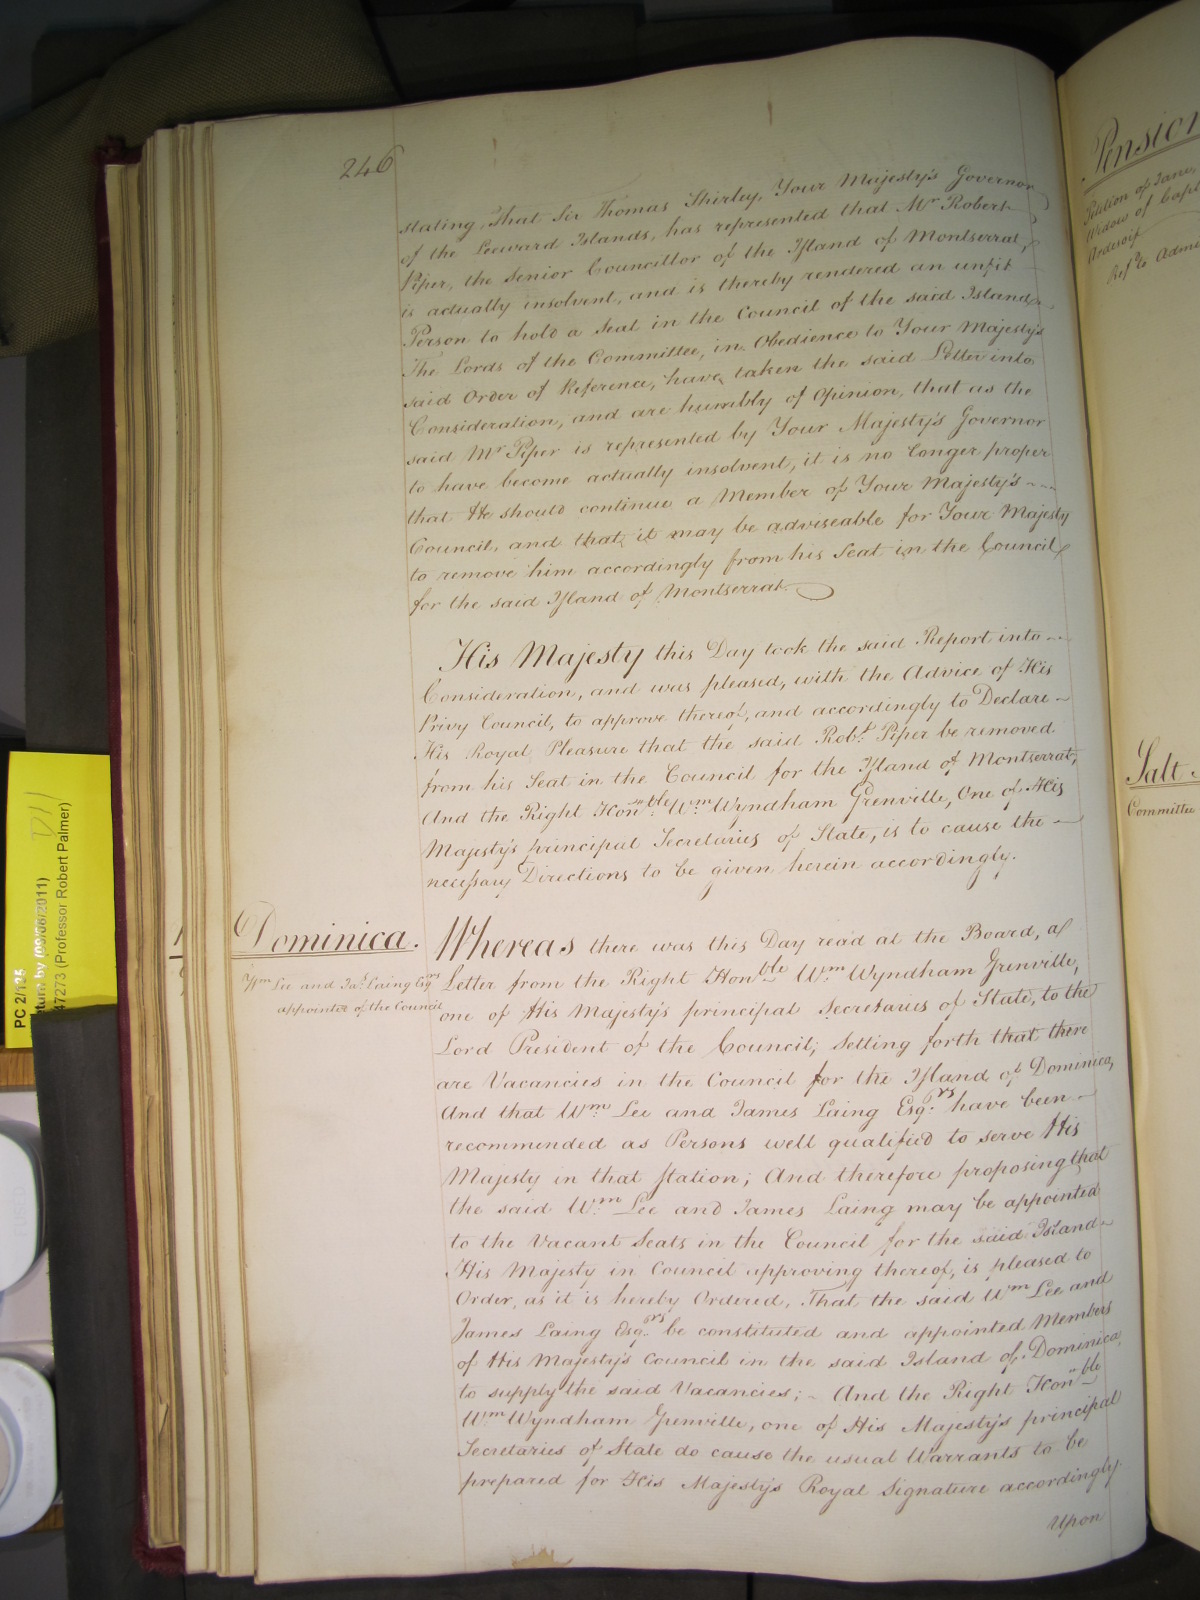 246
stating, That Sir Thomas Shirley, Your Majesty's Governor
of the Leeward Islands, has represented that Mr Robert
Piper, the Senior Councillor of the Island of Montserrat,
is actually insolvent, and is thereby rendered an unfit
Person to hold a Seat in the Council of the said Island,
The Lords of the Committee, in Obedience to Your Majesty's
said Order of Reference, have taken the said Letter into
Consideration, and are humbly of Opinion, that as the
said Mr Piper is represented by Your Majesty's Governor
to have become actually insolvent, it is no longer proper
that He should continue a Member of Your Majesty's
Council, and that it may be adviseable for Your Majesty
to remove him accordingly from his Seat in the Council
for the said Island of Montserrat.
His Majesty this Day took the said Report into
Consideration, and was pleased, with the Advice of His
Privy Council, to approve thereof, and accordingly to Declare
His Royal Pleasure that the said Robt. Piper be removed
from his Seat in the Council for the Island of Montserrat,
And the Right Honble Wm. Wyndham Grenville, One of His
Majesty's principal Secretaries of State, is to cause the
necessary Directions to be given herein accordingly.
Dominica.
Wm Lee and Jas. Laing Esqrs
appointed of the Council
Whereas there was this Day read at the Board, a
Letter from the Right Honble Wm Wyndham Grenville,
one of His Majesty's principal Secretaries of State, to the
Lord President of the Council; Setting forth that there
are Vacancies in the Council for the Island of Dominica,
And that Wm. Lee and James Laing Esqrs. have been
recommended as Persons well qualified to serve His
Majesty in that Station; And therefore proposing that
the said Wm. Lee and James Laing may be appointed
to the Vacant Seats in the Council for the said Island
His Majesty in Council approving thereof, is pleased to
Order, as it is hereby Ordered, That the said Wm Lee and
James Laing Esqrs. be constituted and appointed Members
of His Majesty's Council in the said Island of Dominica,
to supply the said Vacancies; And the Right Honble
Wm Wyndham Grenville, one of His Majesty's principal
Secretaries of State do cause the usual Warrants to be
prepared for His Majesty's Royal Signature accordingly.
Upon
Pension
Petition of Jane,
Widow of Capt
Ref to Adm
Salt
Committee
PC 2/135
return by (09/08/2011)
47273 (Professor Robert Palmer)
D11